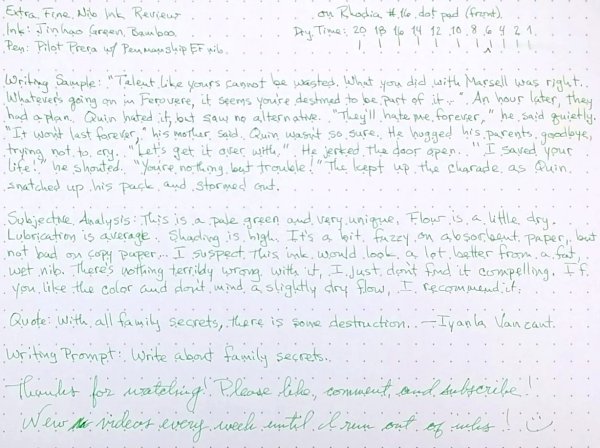 Extra Fine Nib Ink Review on Rhodia #16 dot pad (front)
Ink: Jinhao Green Bamboo Dry Time: 20 18 16 14 12 10 8 6 4 2 1
Pen: Pilot Prera w/ Penmanship EF nib
Writing Sample: "Talent like yours cannot be wasted. What you did with Marsell was right.
Whatevers going on in Ferovere, it seems you're destined to be part of it..." An hour later, they
had a plan. Quin hated it, but saw no alternative. "They'll hate me, forever," he said quietly.
"It won't last forever," his mother said. Quin wasn't so sure. He hugged his parents goodbye,
trying not to cry. "Let's get it over with." He jerked the door open. "I saved your
life!" he shouted. "You're nothing but trouble!" The kept up the charade as Quin
snatched up his pack and stormed out.
Subjective Analysis: This is a pale green and very unique. Flow is a little dry.
Lubrication is average. Shading is high. It's a bit fuzzy on absorbent paper, but
not bad on copy paper... I suspect this ink would look a lot better from a fat,
wet nib. There's nothing terribly wrong with it, I just don't find it compelling. If
you like the color and don't mind a slightly dry flow, I recommend it.
Quote: With all family secrets, there is some destruction. —Iyanla Vanzant.
Writing Prompt: Write about family secrets.
Thanks for watching! Please like, comment, and subscribe!
New videos every week until I run out of inks!